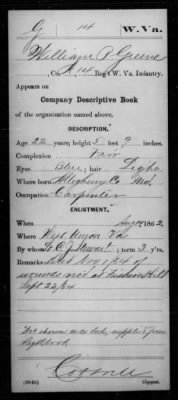 G 14 W. Va.
William P Greene
Co. K, 14 Reg't W. Va. Infantry.
Appears on
Company Descriptive Book
of the organization named above.
DESCRIPTION.
Age 22 years; height 5 feet 9 inches.
Complexion Fair
Eyes Blue; hair Light
Where born Allegheny Co Md.
Occupation Carpenter
ENLISTMENT.
When Aug 14, 1862.
Where West Union Va
By whom Lt. C. J. Stewart; term 3 y'rs.
Remarks: Died Nov 1/64 of
wounds recd at Fishers Hill
Sept 22/64
Copyist.